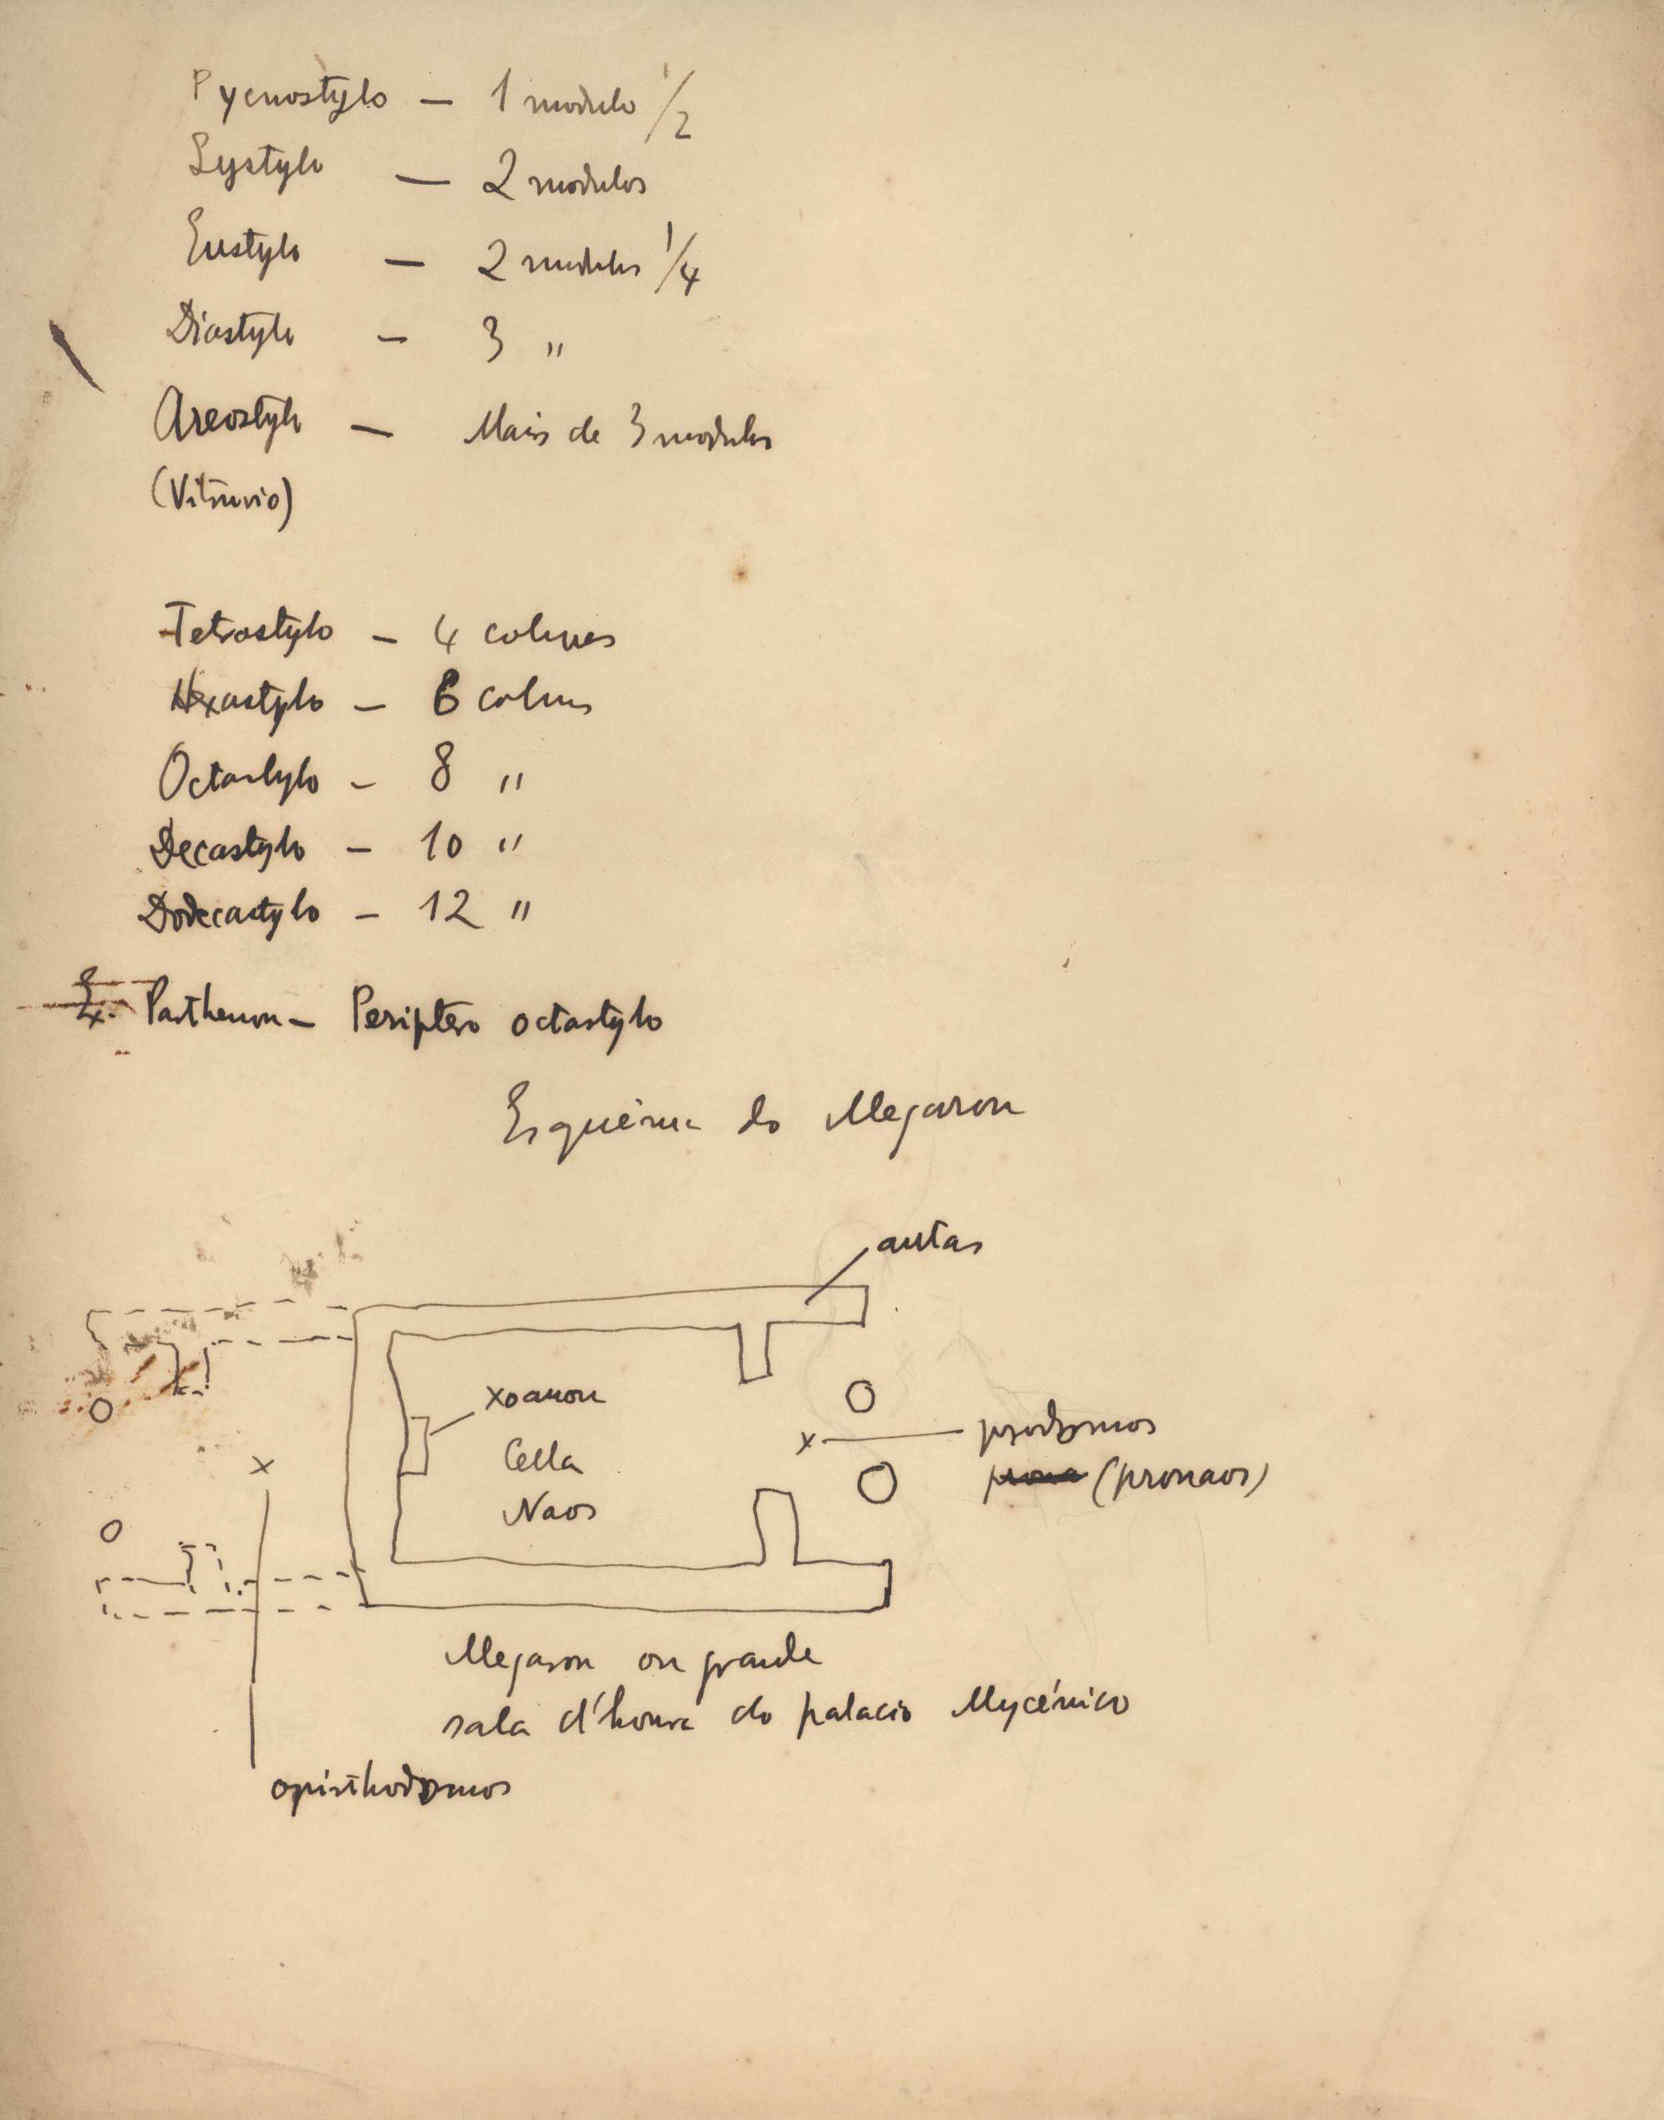 Pycnostylo — 1 modulo 1/2
Systylo — 2 modulos
Eustylo — 2 modulos 1/4
Diastylo — 3 "
Areostylo — Mais de 3 modulos
(Vitruvio)
Tetrastylo — 4 colunas
Hexastylo — 6 colunas
Octastylo — 8 "
Decastylo — 10 "
Dodecastylo — 12 "
Ex. Parthenon — Periptero octastylo
Esquéma do Megaron
antas
xoanon
Cella
Naos
prodomos
(pronaos)
Megaron ou grande
sala d'honra do palacio Mycénico
opisthodomos